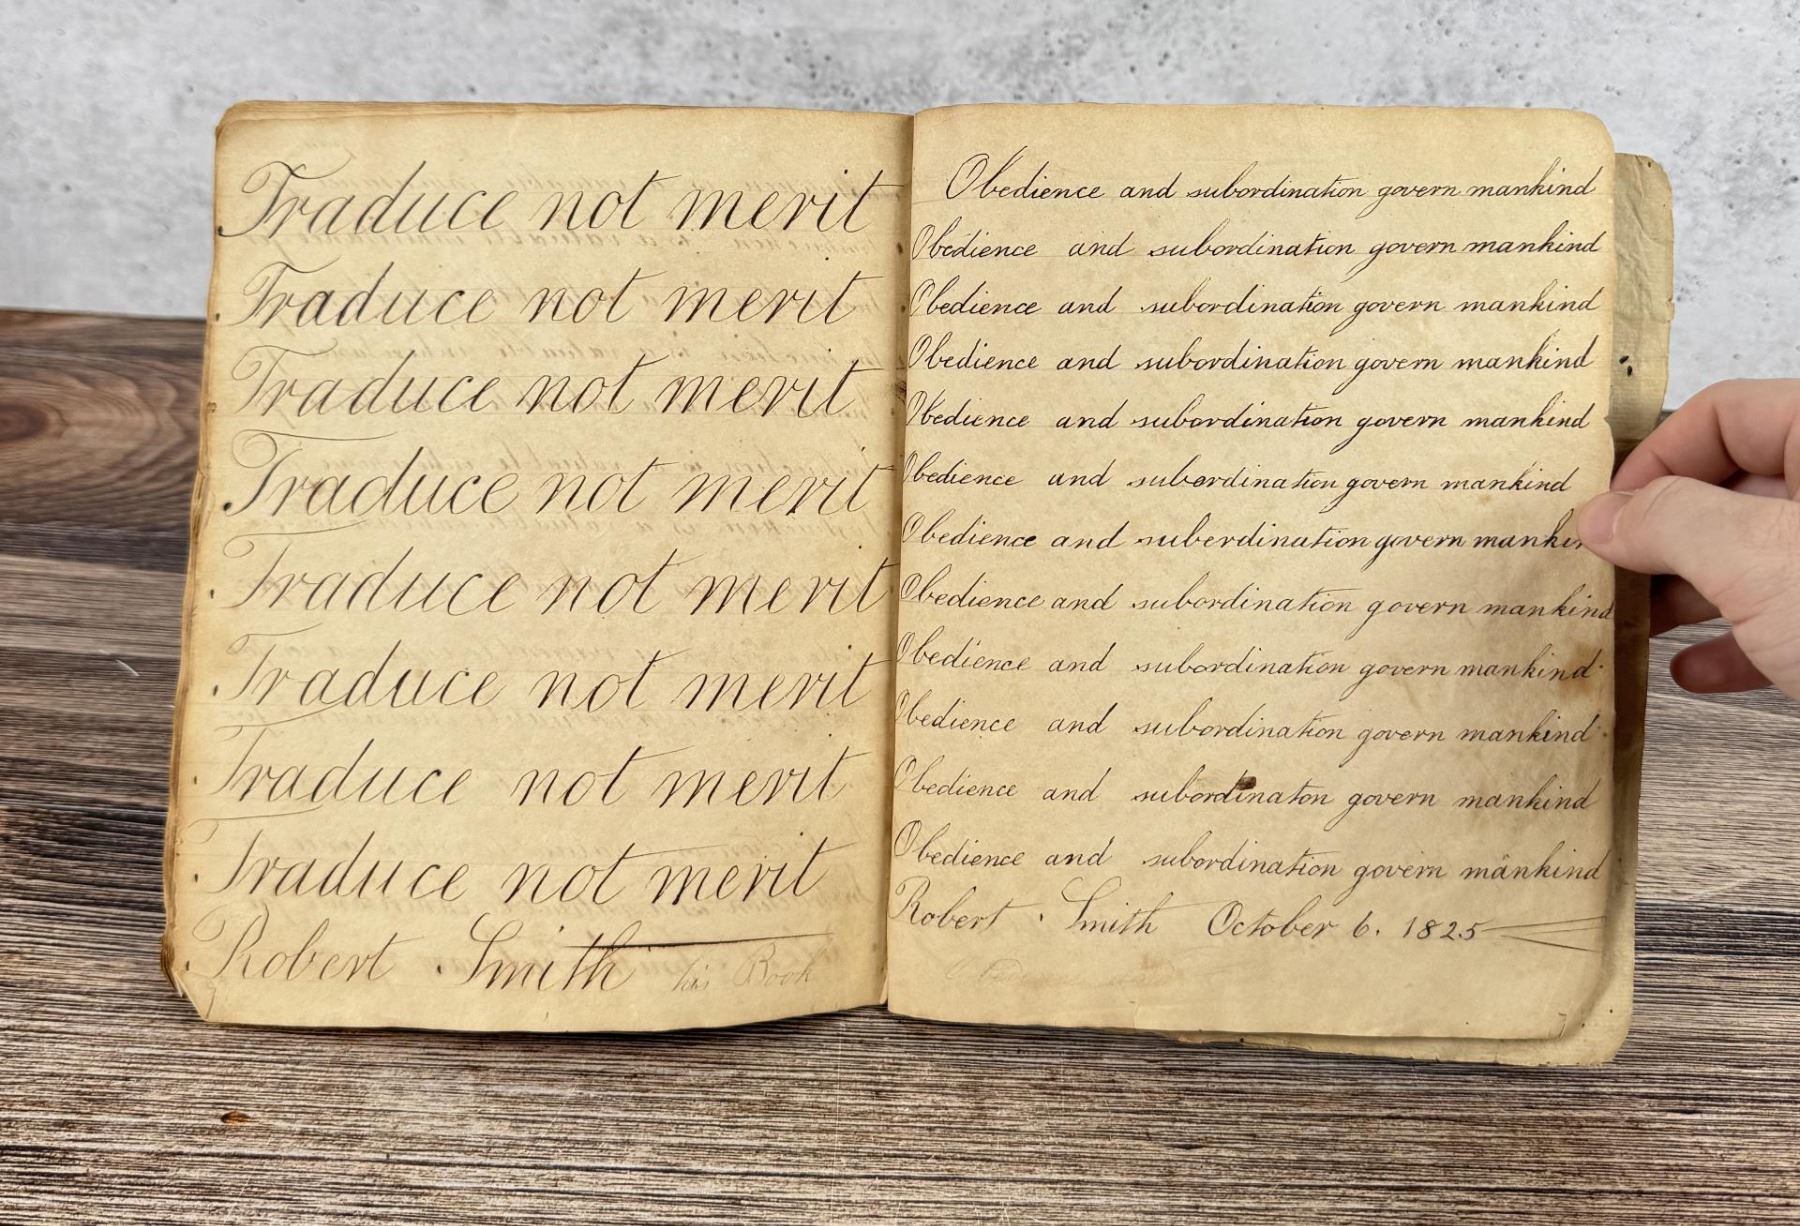 Traduce not merit
Traduce not merit
Traduce not merit
Traduce not merit
Traduce not merit
Traduce not merit
Traduce not merit
Traduce not merit
Robert Smith his Book
Obedience and subordination govern mankind
Obedience and subordination govern mankind
Obedience and subordination govern mankind
Obedience and subordination govern mankind
Obedience and subordination govern mankind
Obedience and subordination govern mankind
Obedience and suberdination govern mankin
Obedience and subordination govern mankind
Obedience and subordination govern mankind
Obedience and subordination govern mankind
Obedience and subordinaton govern mankind
Obedience and subordination govern mankind
Robert Smith October 6. 1825